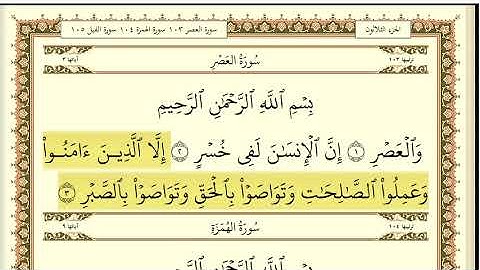 الجزء الثلاثون
سورة العصر ١٠٣ سورة الهمزة ١٠٤ سورة الفيل ١٠٥
ترتيبها ١٠٣
سُورَةُ العَصْرِ
آياتها ٣
بِسْمِ ٱللَّهِ ٱلرَّحْمَٰنِ ٱلرَّحِيمِ
وَٱلْعَصْرِ ١ إِنَّ ٱلْإِنسَٰنَ لَفِى خُسْرٍ ٢ إِلَّا ٱلَّذِينَ ءَامَنُوا۟
وَعَمِلُوا۟ ٱلصَّٰلِحَٰتِ وَتَوَاصَوْا۟ بِٱلْحَقِّ وَتَوَاصَوْا۟ بِٱلصَّبْرِ ٣
ترتيبها ١٠٤
سُورَةُ الهُمَزَةِ
آياتها ٩
بِسْمِ ٱللَّهِ ٱلرَّحْمَٰنِ ٱلرَّحِيمِ